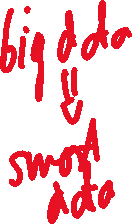 big data
⇓
smart
data